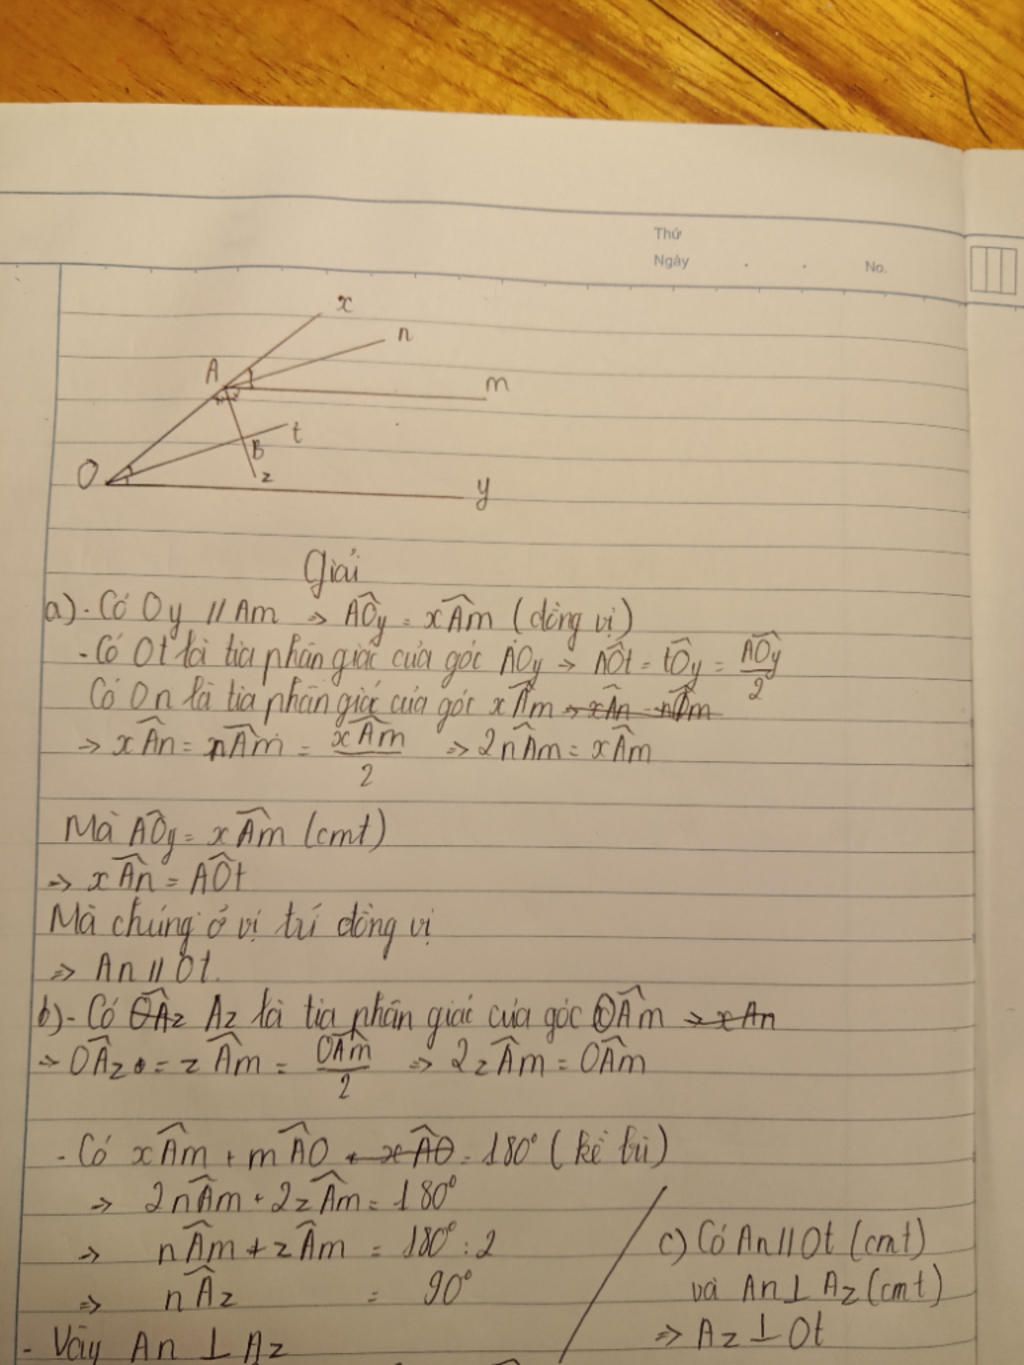 Thứ
Ngày . . No.
x
n
A
m
t
B
O
z
y
Giải
a). Có Oy // Am ⇒ AÔy = xÂm (đồng vị)
- Có Ot là tia phân giác của góc AOy → AÔt = tÔy = AÔy/2
Có On là tia phân giác của góc xÂm → xÂn = nÂm
→ xÂn = nÂm = xÂm/2 ⇒ 2nÂm = xÂm
Mà AÔy = xÂm (cmt)
⇒ xÂn = AÔt
Mà chúng ở vị trí đồng vị
⇒ An // Ot.
b) - Có OÂz Az là tia phân giác của góc OÂm → xAn
→ OÂz = zÂm = OÂm/2 ⇒ 2zÂm = OÂm
- Có xÂm + mÂO + xÂO = 180° (kề bù)
⇒ 2nÂm + 2zÂm = 180°
⇒ nÂm + zÂm = 180° : 2
⇒ nÂz = 90°
- Vậy An ⊥ Az
c) Có An // Ot (cmt)
và An ⊥ Az (cmt)
⇒ Az ⊥ Ot